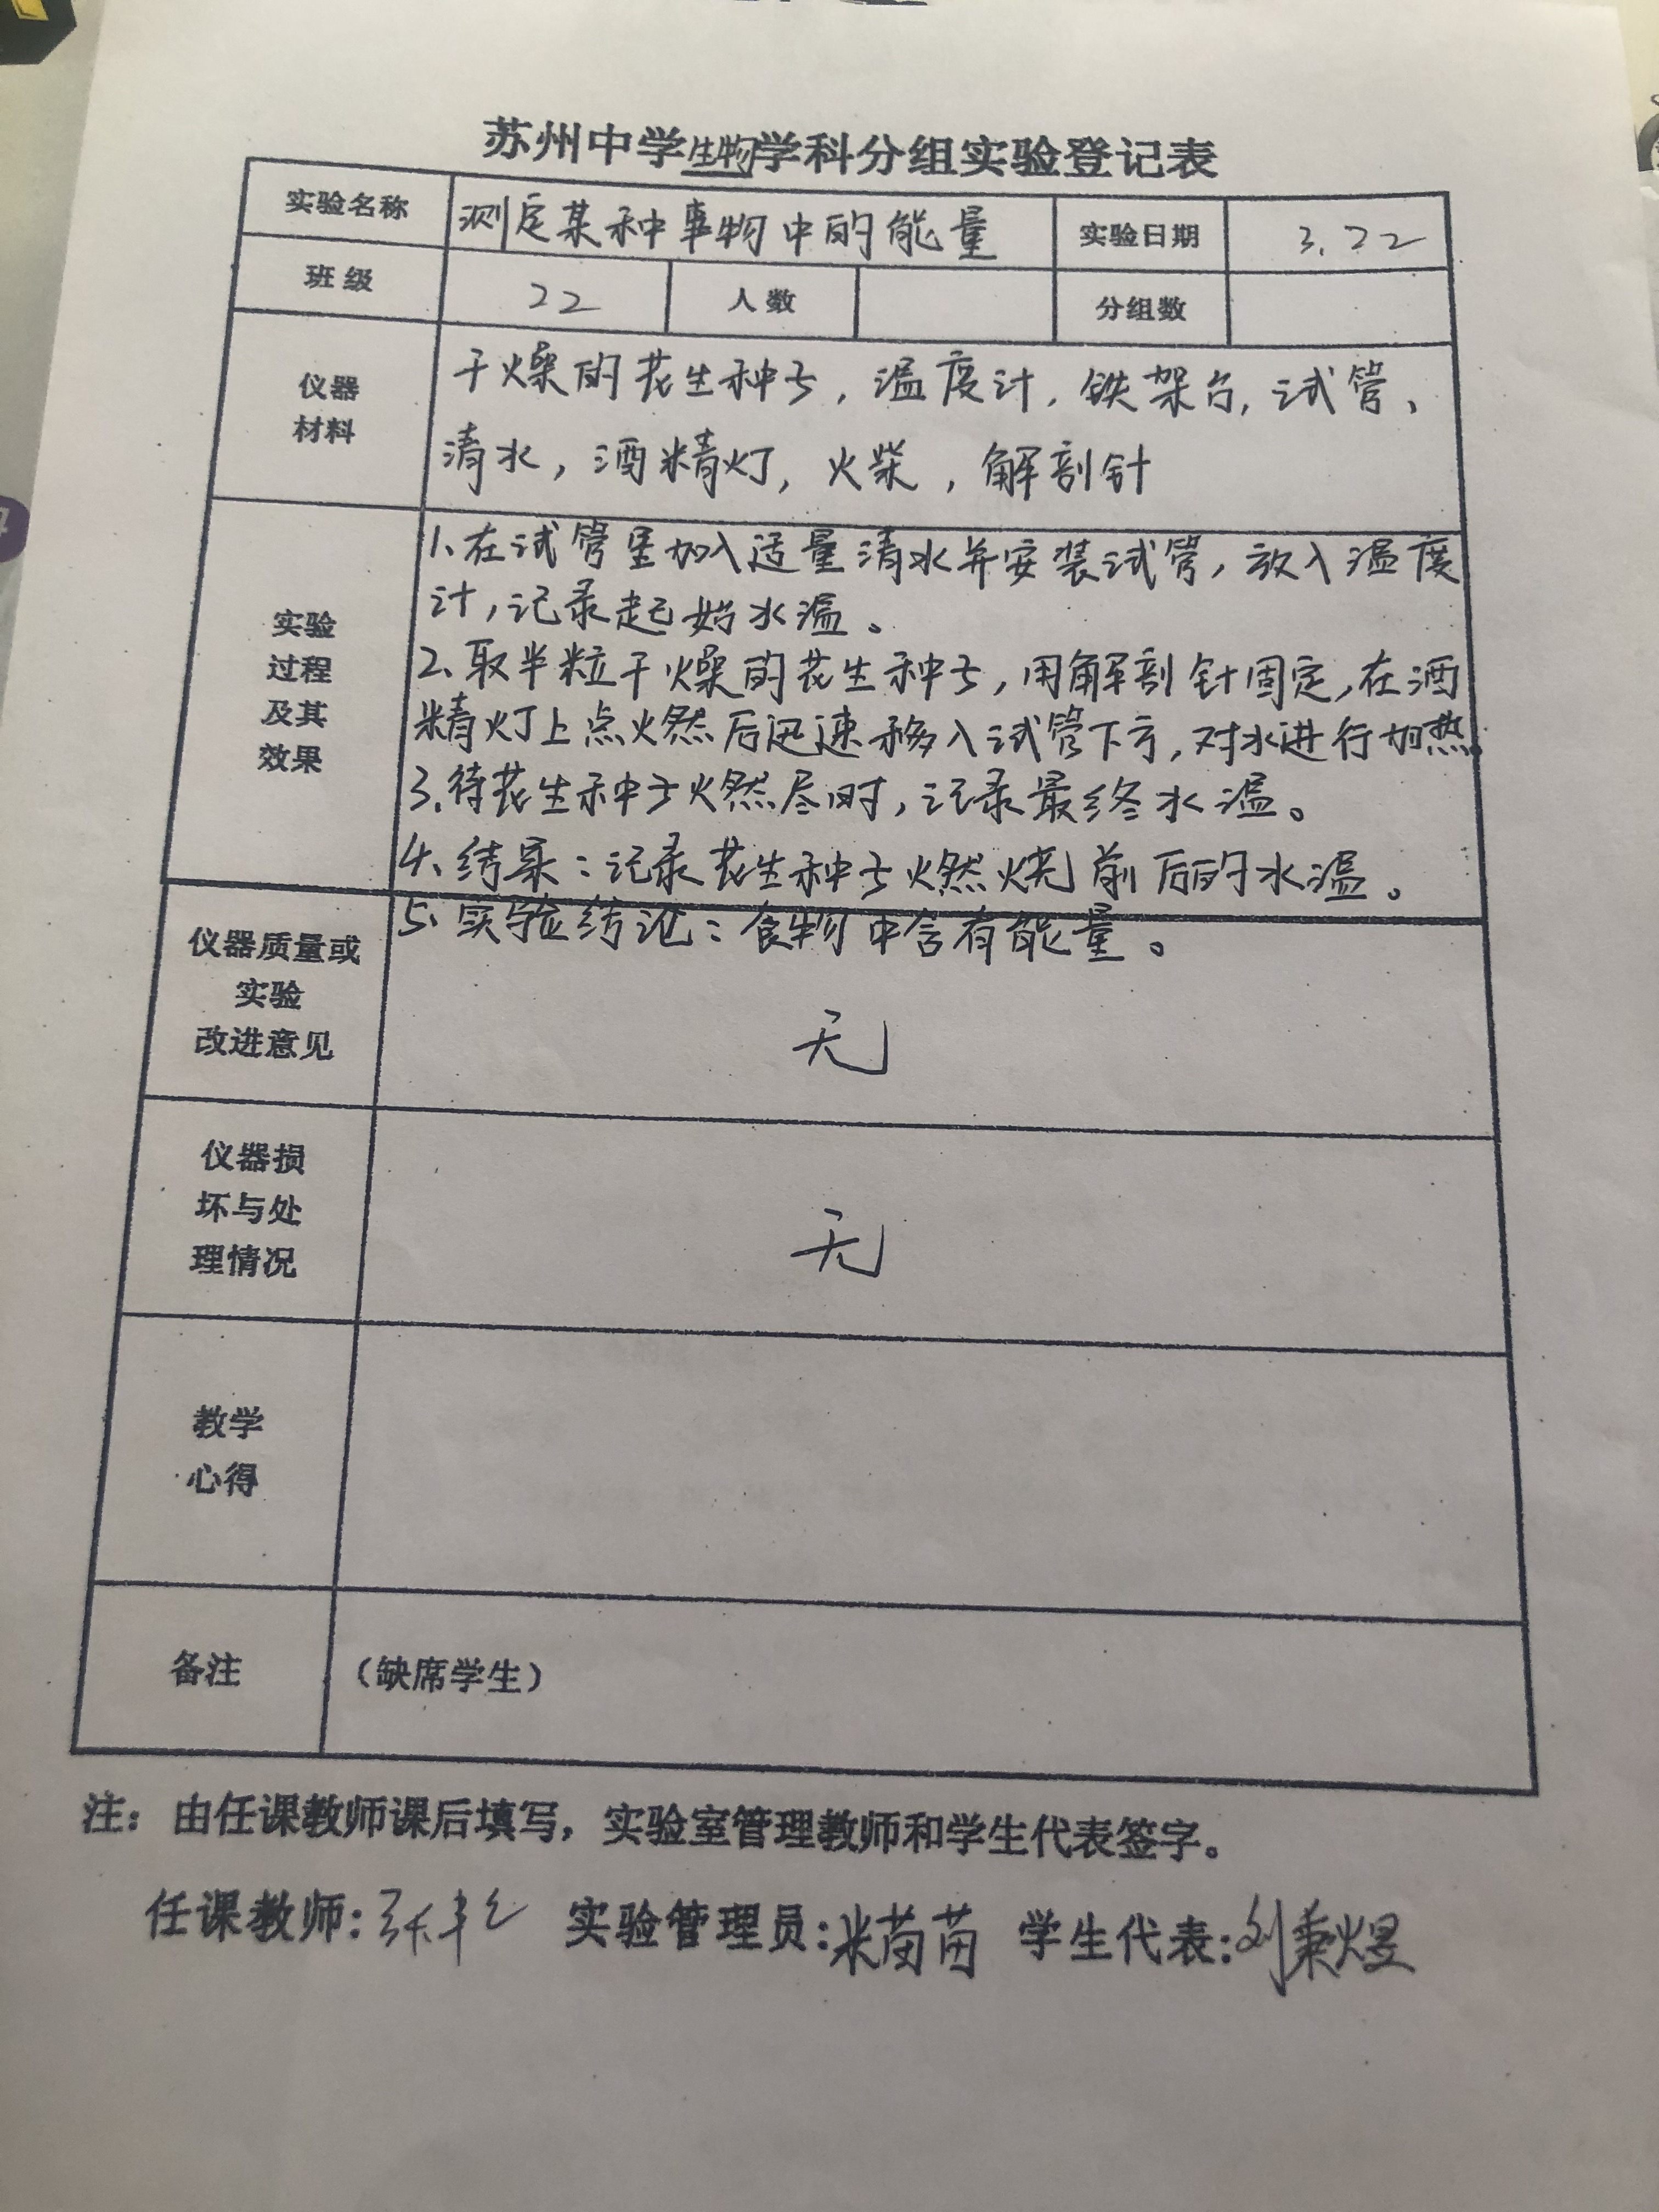 苏州中学生物学科分组实验登记表
实验名称 测定某种事物中的能量 实验日期 3.22
班级 22 人数 分组数
仪器
材料
干燥的花生种子，温度计，铁架台，试管、
清水，酒精灯，火柴，解剖针
实验
过程
及其
效果
1、在试管里加入适量清水并安装试管，放入温度
计，记录起始水温。
2、取半粒干燥的花生种子，用解剖针固定，在酒
精灯上点燃后迅速移入试管下方，对水进行加热。
3、待花生种子燃尽时，记录最终水温。
4、结果：记录花生种子燃烧前后的水温。
5、实验结论：食物中含有能量。
仪器质量或
实验
改进意见
无
仪器损
坏与处
理情况
无
教学
心得
备注 （缺席学生）
注：由任课教师课后填写，实验室管理教师和学生代表签字。
任课教师: 实验管理员:米苗苗 学生代表:刘秉煜